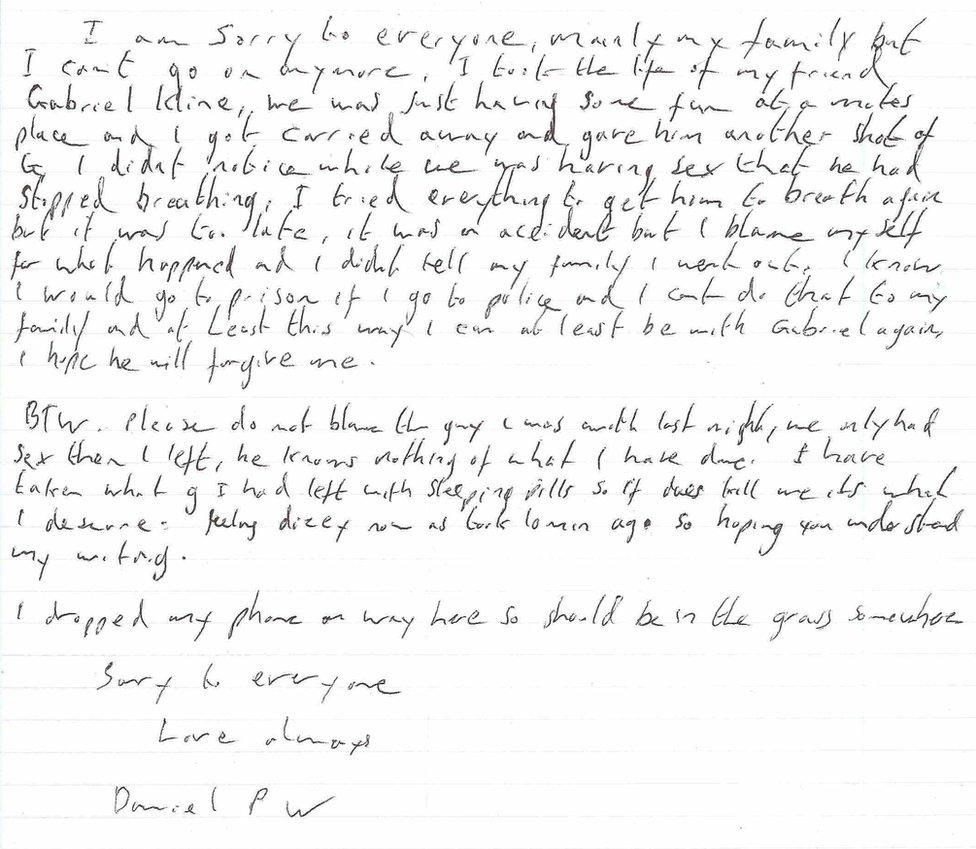 I am sorry to everyone, mainly my family but
I can't go on anymore, I took the life of my friend
Gabriel Kline, we was just having some fun at a mates
place and I got carried away and gave him another shot of
G, I didnt notice while we was having sex that he had
stopped breathing, I tried everything to get him to breath again
but it was to late, it was an accident but I blame myself
for what happened and I didnt tell my family I went out. I know
I would go to prison if I go to police and I cant do that to my
family and at Least this way I can at least be with Gabriel again,
I hope he will forgive me.
BTW. Please do not blame the guy I was with last night, we only had
sex then I left, he knows nothing of what I have done. I have
taken what g I had left with sleeping pills so if it does kill me its what
I deserve. Feeling dizzy now as took 10min ago so hoping you understand
my writing.
I dropped my phone on way here so should be in the grass somewhere
Sorry to everyone
Love always
Daniel P W